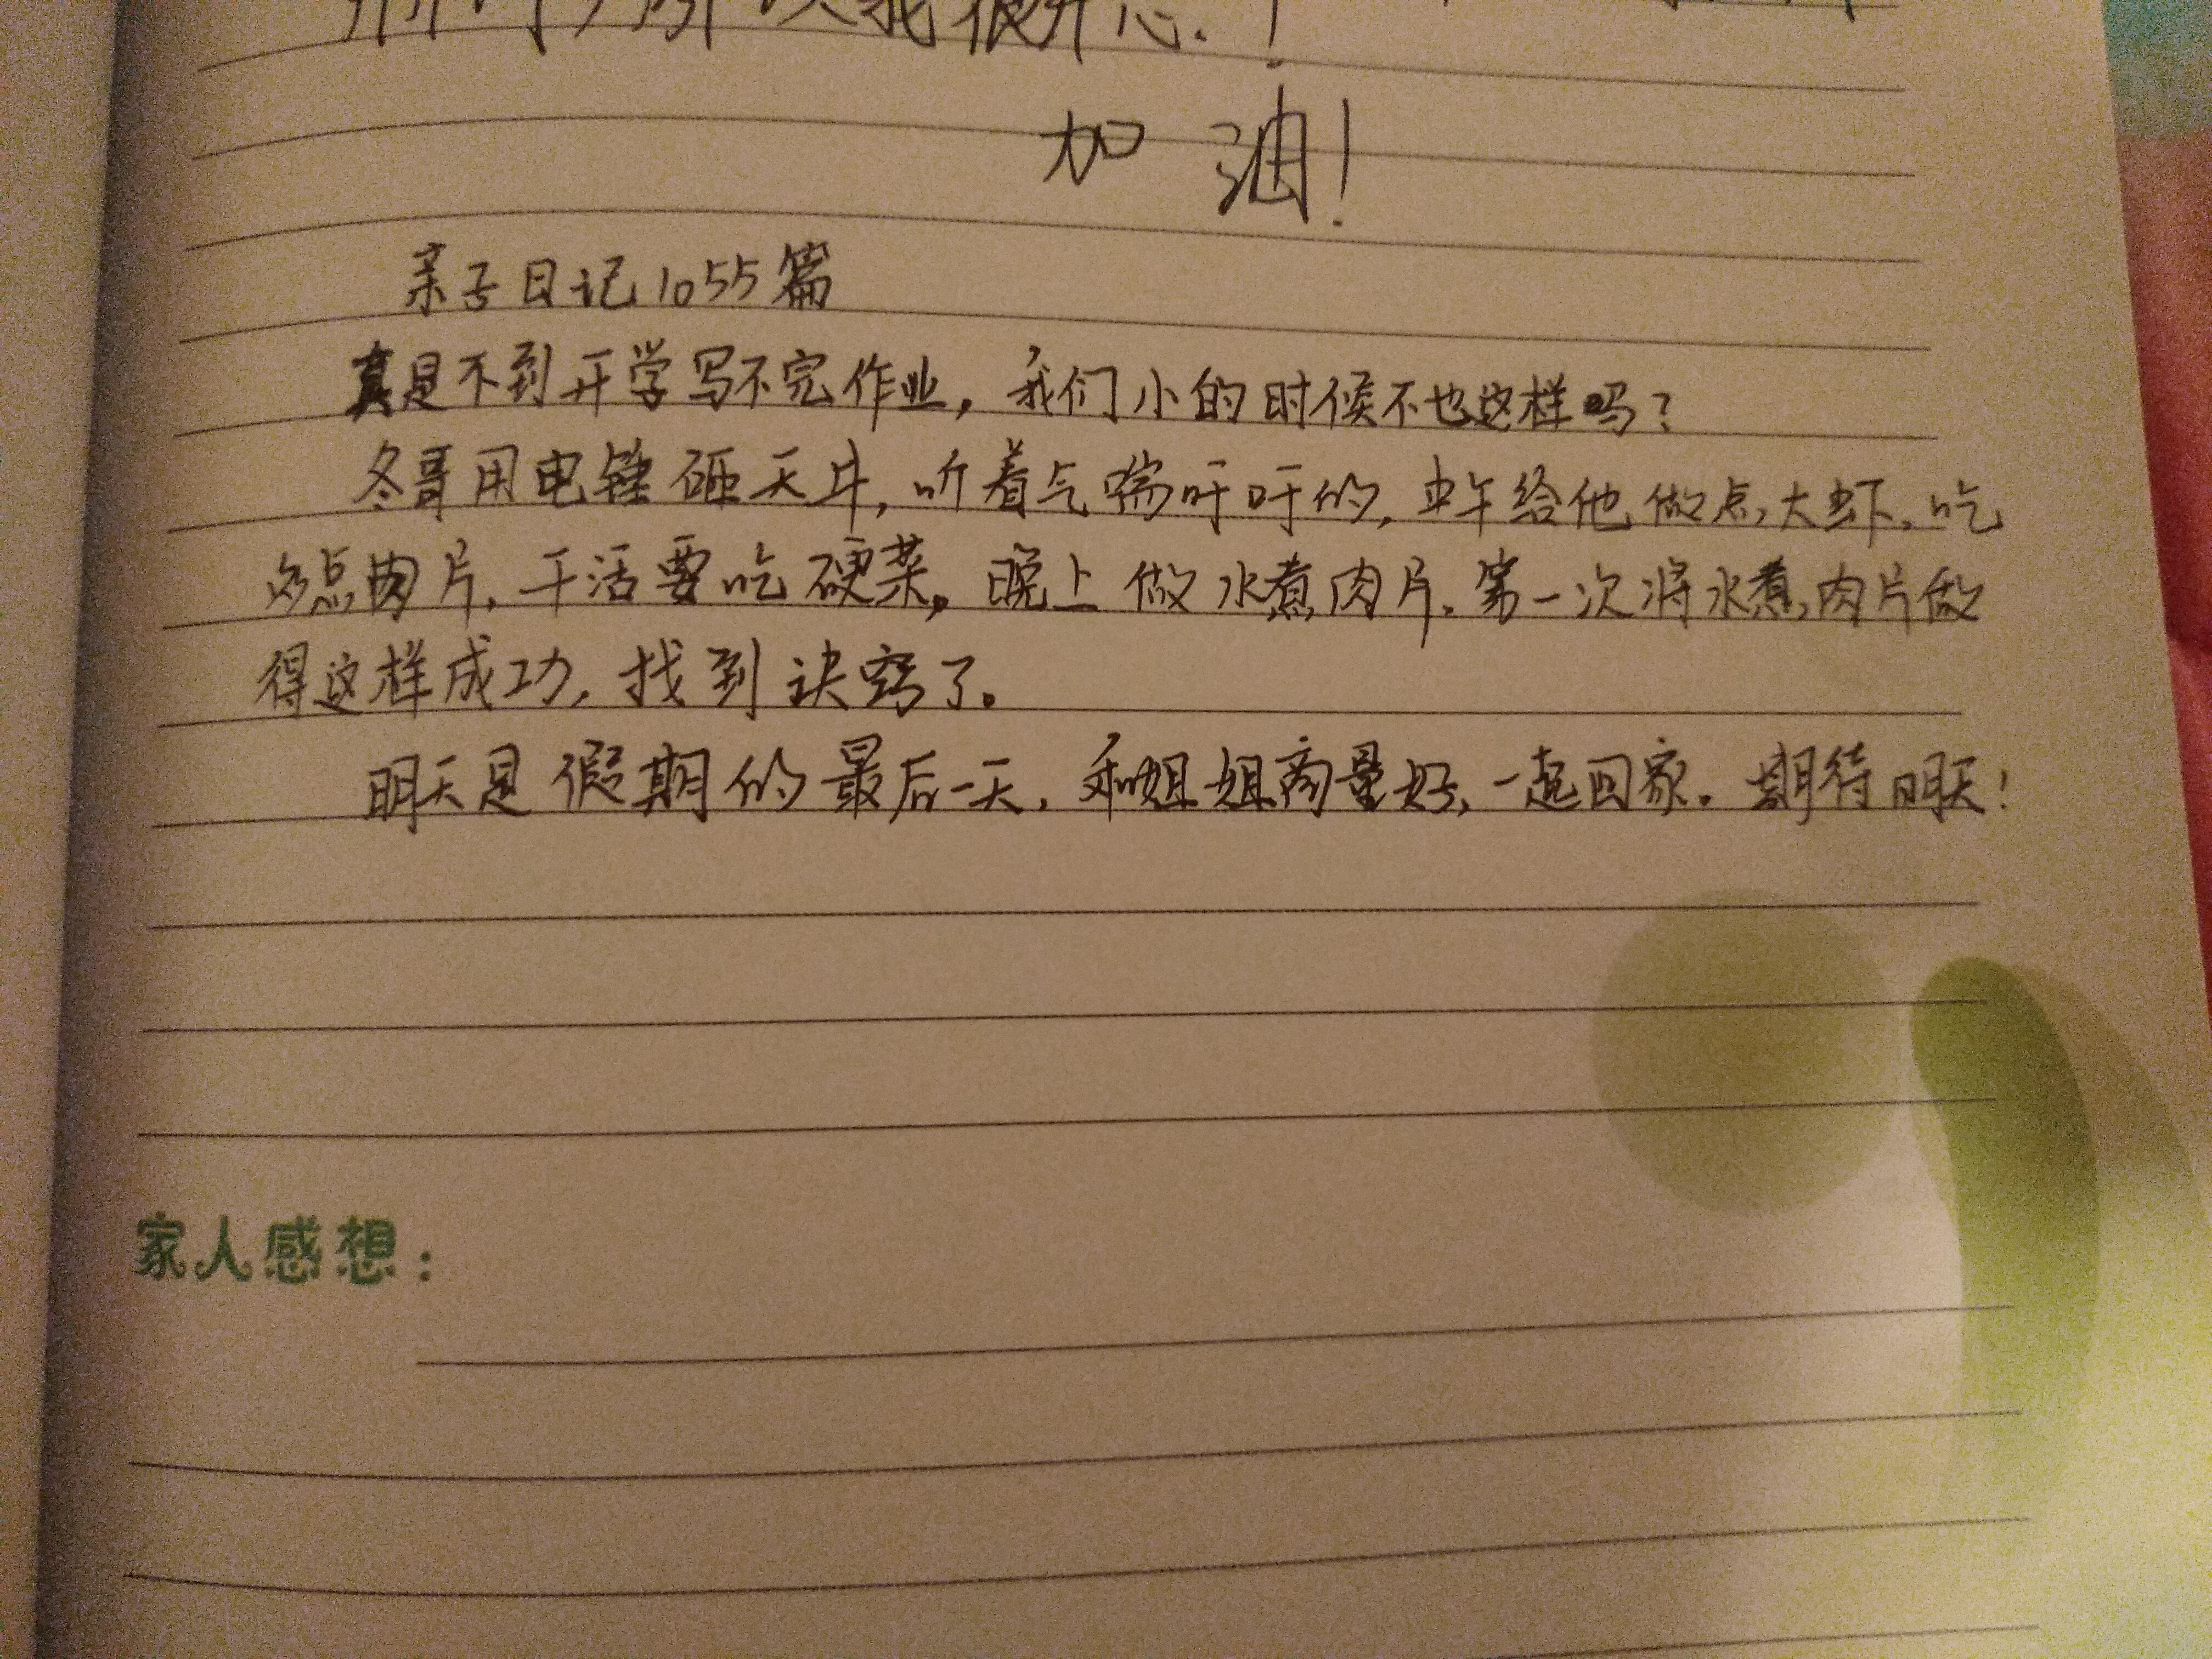 所以我很开心.!
加油!
亲子日记1055篇
真是不到开学写不完作业,我们小的时候不也这样吗?
冬哥用电锤砸天井,听着气喘吁吁的,中午给他做点大虾,吃
点肉片,干活要吃硬菜。晚上做水煮肉片.第一次将水煮肉片做
得这样成功,找到诀窍了。
明天是假期的最后一天,和姐姐商量好,一起回家。期待明天!
家人感想: